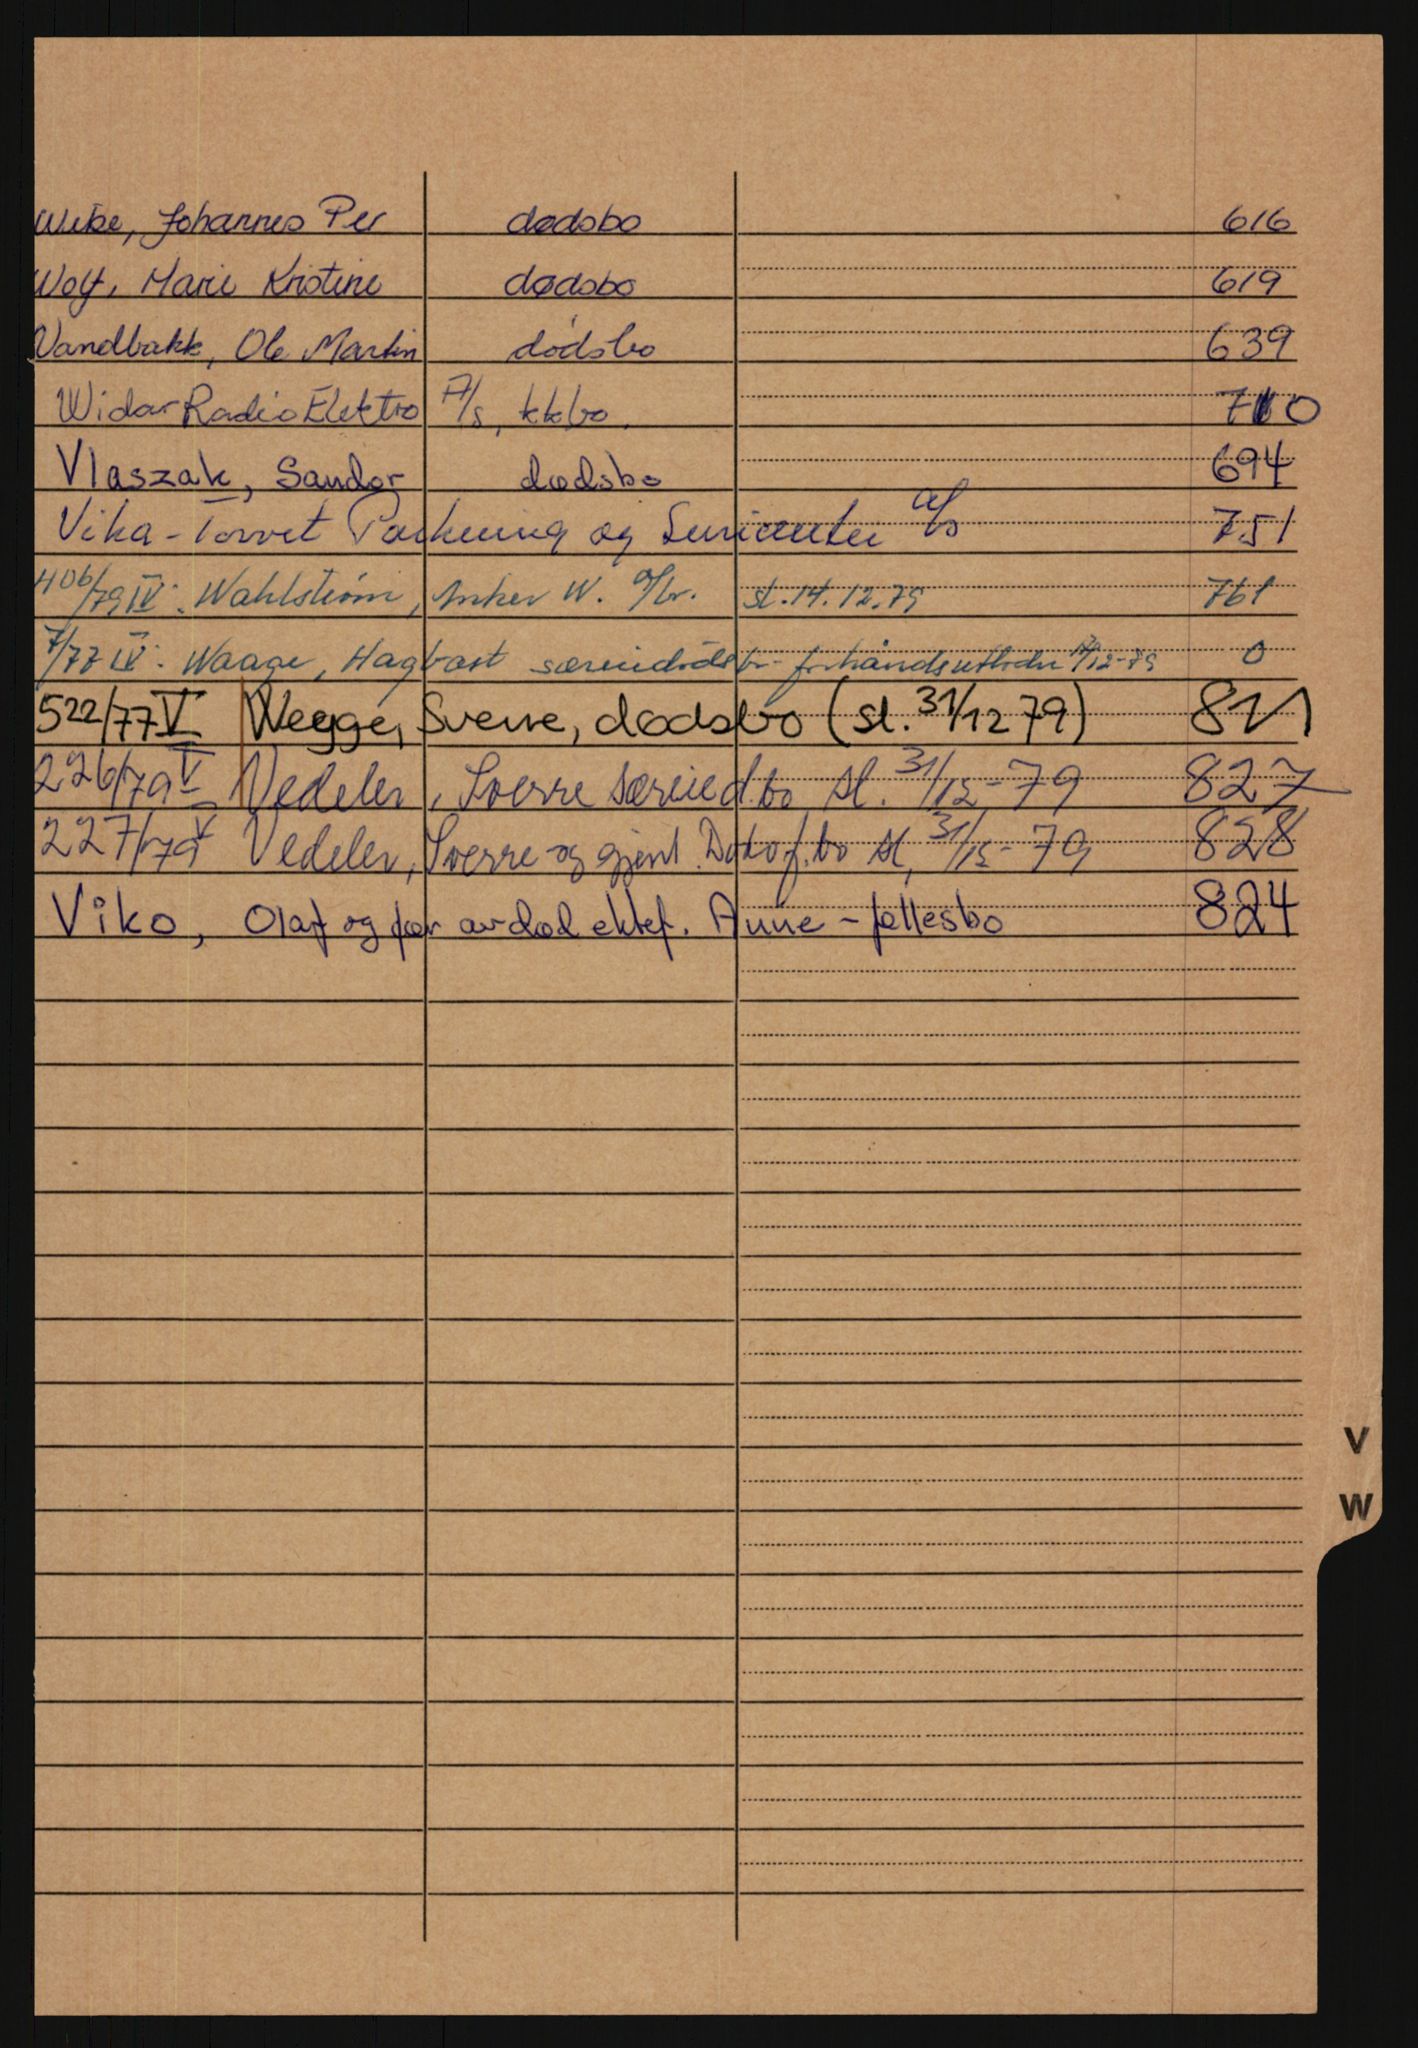 Wike, Johannes Per dødsbo 616
Wolf, Marie Kristine dødsbo 619
Vandbakk, Ole Martin dødsbo 639
Widar Radio Elektro A/S, kkbo. 710
Vlaszak, Sandor dødsbo 694
Vika-Torvet Parkering og Servicesenter A/S 751
406/79 IV: Wahlstrøm, Anker W. st. 14.12.79 761
7/77 IV: Waage, Hagbart særeiedødsbo - forhåndsutlodn. 12-79 0
522/77 V Wegge, Sverre, dødsbo (sl. 31/12 79) 811
226/79 V Vedeler, Sverre særeied.bo sl. 31/12-79 827
227/79 V Vedeler, Sverre og gjenl. bo sl. 31/12-79 828
Viko, Olaf og før avdød ektef. Anne - fellesbo 824
V
W